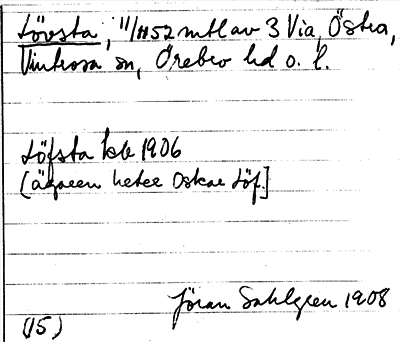 Lövsta, 11/1152 mtl av 3 Via, Östra,
Vintrosa sn, Örebro hd o. l.
Löfsta kb 1906
[ägaren heter Oskar Löf.]
Jöran Sahlgren 1908
(15)